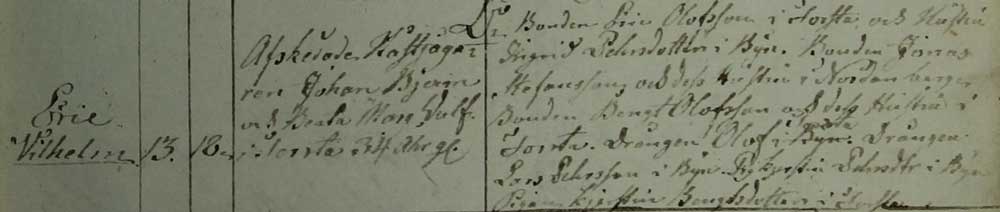 Eric
Vilhelm
13.
18
Afskedade Hästjäga=
ren Johan Bjerin
och Beata Man Dulf
i Torsta 34 Åhr gl.
Bonden Eric Olofsson i Torsta och Hustru
Ingrid Pehrsdotter i Byn. Bonden Jonas
Stefansson, och dess Hustru i Nordanberge
Bonden Bengt Olofsson och dess Hustru i
Torsta. Drängen Olof i Byn. Drängen
Lars Pehrsson i Byn. Pig. Kjerstin Pehrsdtr i Byn
Pigan Kjerstin Bengtsdotter i Torsta